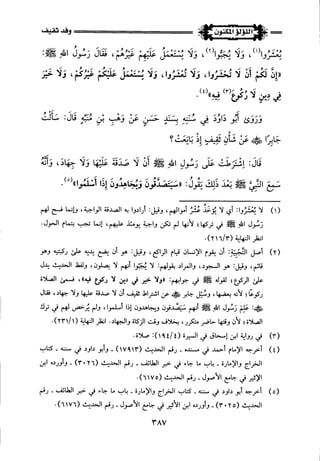 اللؤلؤ المكنون
وفد ثقيف
يُعْشَرُوا(١)، وَلَا يُجَبُّوا(٢)، وَلَا يُسْتَعْمَلَ عَلَيْهِمْ غَيْرُهُمْ، فَقَالَ رَسُولُ اللهِ ﷺ:
«إِنَّ لَكُمْ أَنْ لَا تُحْشَرُوا، وَلَا تُعْشَرُوا، وَلَا يُسْتَعْمَلَ عَلَيْكُمْ غَيْرُكُمْ، وَلَا خَيْرَ
فِي دِينٍ لَا رُكُوعَ(٣) فِيهِ»(٤).
وَرَوَى أَبُو دَاوُدَ فِي سُنَنِهِ بِسَنَدٍ حَسَنٍ عَنْ وَهْبِ بْنِ مُنَبِّهٍ قَالَ: سَأَلْتُ
جَابِرًا ﷺ عَنْ شَأْنِ ثَقِيفٍ إِذْ بَايَعَتْ؟
قَالَ: اشْتَرَطَتْ عَلَى رَسُولِ اللهِ ﷺ أَنْ لَا صَدَقَةَ عَلَيْهَا وَلَا جِهَادَ، وَأَنَّهُ
سَمِعَ النَّبِيَّ ﷺ بَعْدَ ذَلِكَ يَقُولُ: «سَيَتَصَدَّقُونَ وَيُجَاهِدُونَ إِذَا أَسْلَمُوا»(٥).
(١) لا يُعشروا: أي لا يؤخذ عُشر أموالهم، وقيل: أرادوا به الصدقة الواجبة، وإنما فسح لهم
رسول الله ﷺ في تركها؛ لأنها لم تكن واجبة يومئذ عليهم، إنما تجب بتمام الحول.
انظر النهاية (٢١٦/٣).
(٢) أصل التَّجْبِيَةِ: أن يقوم الإنسان قيام الراكع، وقيل: هو أن يضع يديه على ركبتيه وهو
قائم، وقيل: هو السجود، والمراد بقولهم: لا يُجبوا أنهم لا يصلون، ولفظ الحديث يدل
على الركوع؛ لقوله ﷺ في جوابهم: «ولا خير في دين لا ركوع فيه»، فسمى الصلاة
ركوعًا؛ لأنه بعضها، وسُئل جابر ﷺ عن اشتراط ثقيف أن لا صدقة عليها ولا جهاد، فقال
ﷺ: عَلِمَ رسول الله ﷺ أنهم سيتصدقون ويجاهدون إذا أسلموا، ولم يُرخص لهم في ترك
الصلاة؛ لأن وقتها حاضر متكرر، بخلاف وقت الزكاة والجهاد. انظر النهاية (٢٣١/١)
(٣) في رواية ابن إسحاق في السيرة (١٩٤/٤): صلاة.
(٤) أخرجه الإمام أحمد في مسنده ـ رقم الحديث (١٧٩١٣) ـ وأبو داود في سننه ـ كتاب
الخراج والإمارة ـ باب ما جاء في خبر الطائف ـ رقم الحديث (٣٠٢٦) ـ وأورده ابن
الأثير في جامع الأصول ـ رقم الحديث (٦١٧٥).
(٥) أخرجه أبو داود في سننه ـ كتاب الخراج والإمارة ـ باب ما جاء في خبر الطائف ـ رقم
الحديث (٣٠٢٥) ـ وأورده ابن الأثير في جامع الأصول ـ رقم الحديث (٦١٧٦).
٣٨٧